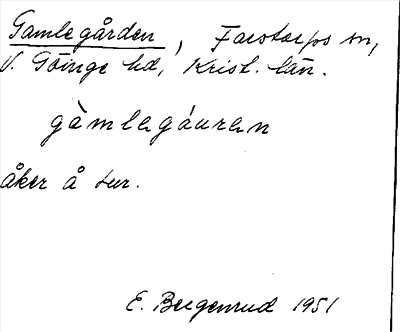 Gamlegården, Farstorps sn,
V. Göinge hd, Krist. län.
gàmlagáuran
åker å tur.
E. Bergenrud 1951